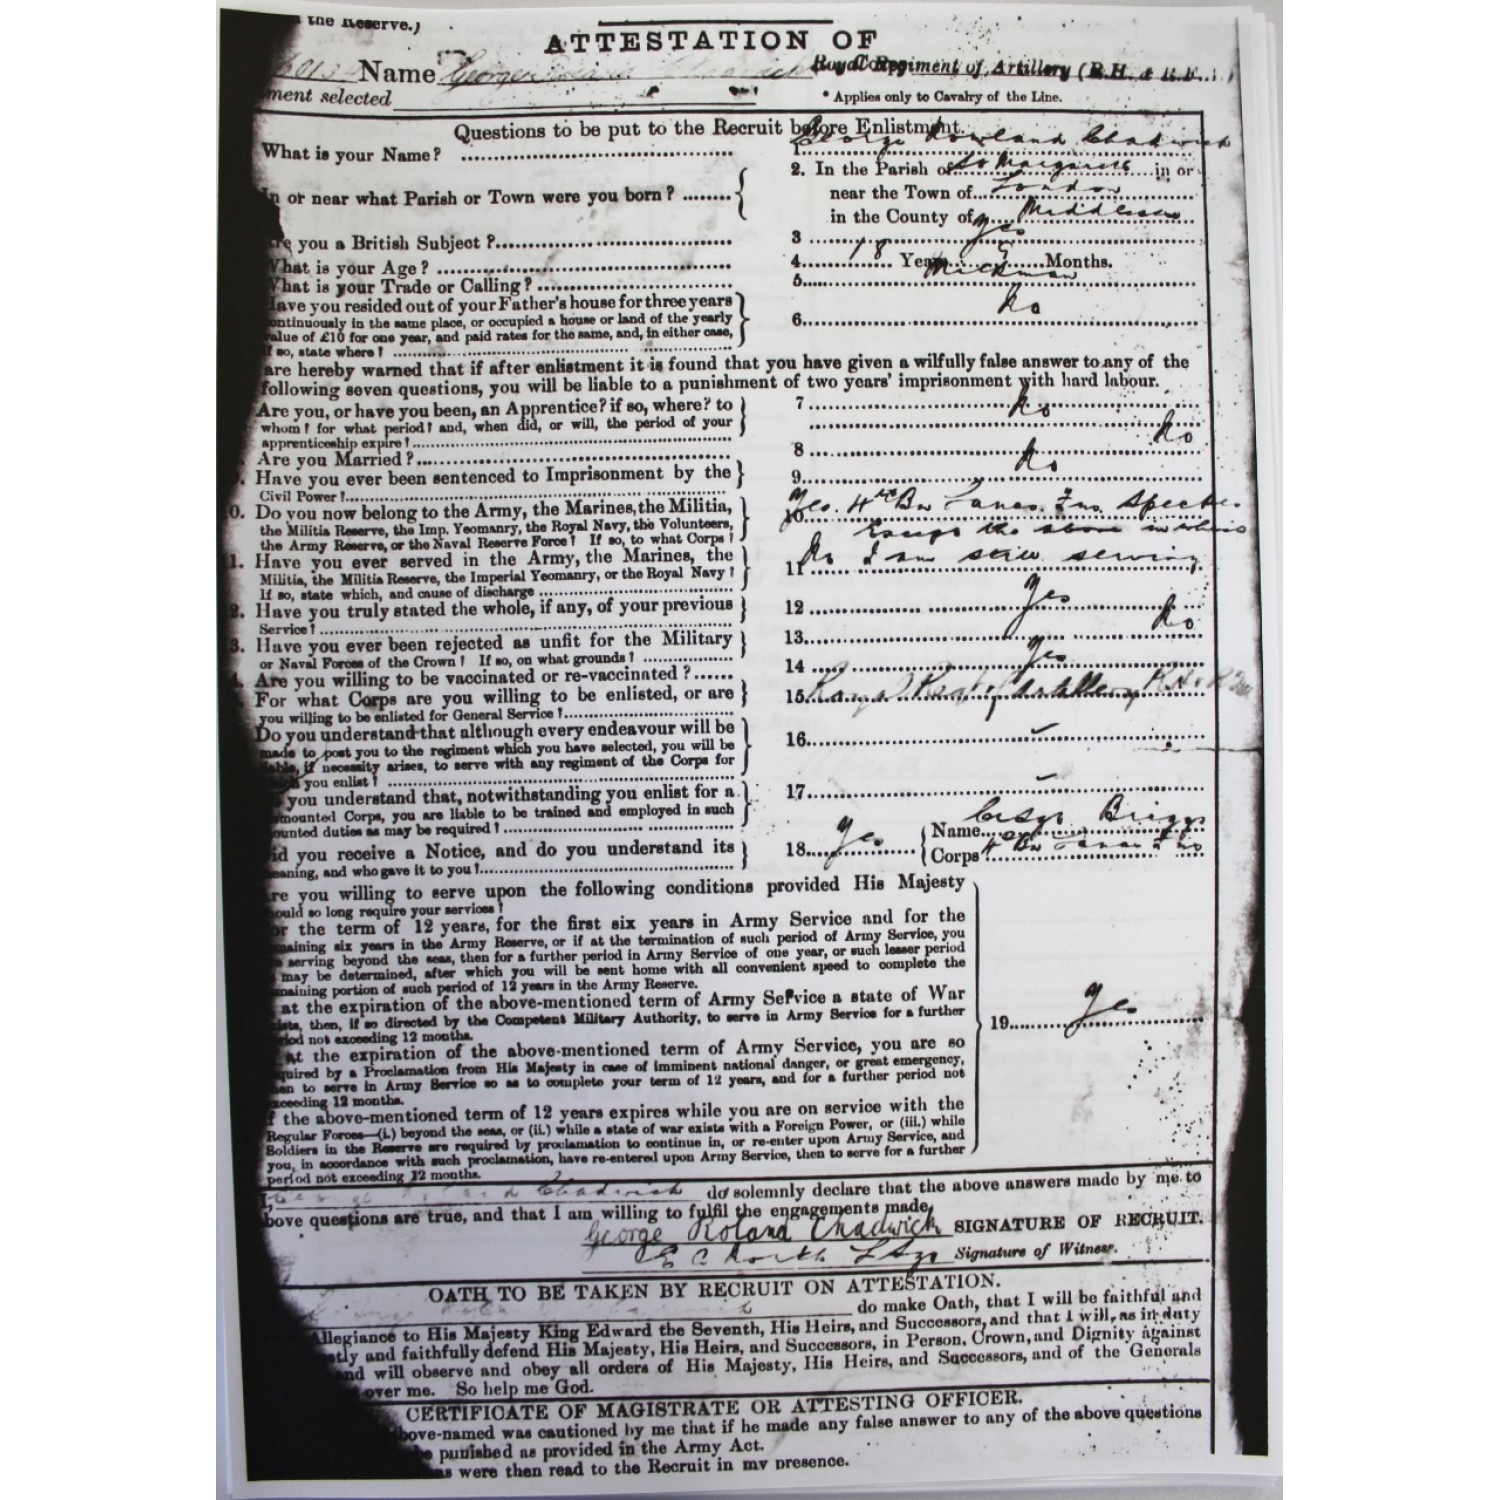 the Reserve.)
ATTESTATION OF
Name George Chadwick Royal Regiment of Artillery (R.H. & R.F.
ment selected
* Applies only to Cavalry of the Line.
Questions to be put to the Recruit before Enlistment.
What is your Name? 1. George Rowland Chadwick
In or near what Parish or Town were you born? 2. In the Parish of St Margarets in or
near the Town of London
in the County of Middlesex
Are you a British Subject? 3 Yes
What is your Age? 4. 18 Years 5 Months.
What is your Trade or Calling? 5. Milkman
Have you resided out of your Father's house for three years
continuously in the same place, or occupied a house or land of the yearly
value of £10 for one year, and paid rates for the same, and, in either case, 6. No
if so, state where?
are hereby warned that if after enlistment it is found that you have given a wilfully false answer to any of the
following seven questions, you will be liable to a punishment of two years' imprisonment with hard labour.
Are you, or have you been, an Apprentice? if so, where? to 7 No
whom? for what period? and, when did, or will, the period of your
apprenticeship expire?
Are you Married? 8 No
Have you ever been sentenced to Imprisonment by the 9. No
Civil Power?
0. Do you now belong to the Army, the Marines, the Militia, 10. Yes. 4th Bn Lancs Fus Special
the Militia Reserve, the Imp. Yeomanry, the Royal Navy, the Volunteers,
the Army Reserve, or the Naval Reserve Force? If so, to what Corps? Except the above in which
1. Have you ever served in the Army, the Marines, the 11 No I am still serving
Militia, the Militia Reserve, the Imperial Yeomanry, or the Royal Navy?
If so, state which, and cause of discharge
2. Have you truly stated the whole, if any, of your previous 12 Yes
Service?
3. Have you ever been rejected as unfit for the Military 13. No
or Naval Forces of the Crown? If so, on what grounds?
Are you willing to be vaccinated or re-vaccinated? 14 Yes
For what Corps are you willing to be enlisted, or are 15. Royal Regt of Artillery R.H & R.F.A
you willing to be enlisted for General Service?
Do you understand that although every endeavour will be
made to post you to the regiment which you have selected, you will be 16.
liable, if necessity arises, to serve with any regiment of the Corps for
which you enlist?
you understand that, notwithstanding you enlist for a 17.
mounted Corps, you are liable to be trained and employed in such
ounted duties as may be required?
id you receive a Notice, and do you understand its 18. Yes Name Briggs
eaning, and who gave it to you? Corps 4 Bn Lancs Fus
re you willing to serve upon the following conditions provided His Majesty
ould so long require your services?
or the term of 12 years, for the first six years in Army Service and for the
maining six years in the Army Reserve, or if at the termination of such period of Army Service, you
serving beyond the seas, then for a further period in Army Service of one year, or such lesser period
may be determined, after which you will be sent home with all convenient speed to complete the
maining portion of such period of 12 years in the Army Reserve.
at the expiration of the above-mentioned term of Army Service a state of War
ists, then, if so directed by the Competent Military Authority, to serve in Army Service for a further 19. Yes
riod not exceeding 12 months.
at the expiration of the above-mentioned term of Army Service, you are so
quired by a Proclamation from His Majesty in case of imminent national danger, or great emergency,
en to serve in Army Service so as to complete your term of 12 years, and for a further period not
xceeding 12 months.
f the above-mentioned term of 12 years expires while you are on service with the
Regular Forces—(i.) beyond the seas, or (ii.) while a state of war exists with a Foreign Power, or (iii.) while
Soldiers in the Reserve are required by proclamation to continue in, or re-enter upon Army Service, and
you, in accordance with such proclamation, have re-entered upon Army Service, then to serve for a further
period not exceeding 12 months.
I, George Roland Chadwick do solemnly declare that the above answers made by me to
bove questions are true, and that I am willing to fulfil the engagements made.
George Roland Chadwick SIGNATURE OF RECRUIT.
E C North Signature of Witness.
OATH TO BE TAKEN BY RECRUIT ON ATTESTATION.
George Roland Chadwick do make Oath, that I will be faithful and
Allegiance to His Majesty King Edward the Seventh, His Heirs, and Successors, and that I will, as in duty
stly and faithfully defend His Majesty, His Heirs, and Successors, in Person, Crown, and Dignity against
nd will observe and obey all orders of His Majesty, His Heirs, and Successors, and of the Generals
over me. So help me God.
CERTIFICATE OF MAGISTRATE OR ATTESTING OFFICER.
bove-named was cautioned by me that if he made any false answer to any of the above questions
be punished as provided in the Army Act.
as were then read to the Recruit in my presence.